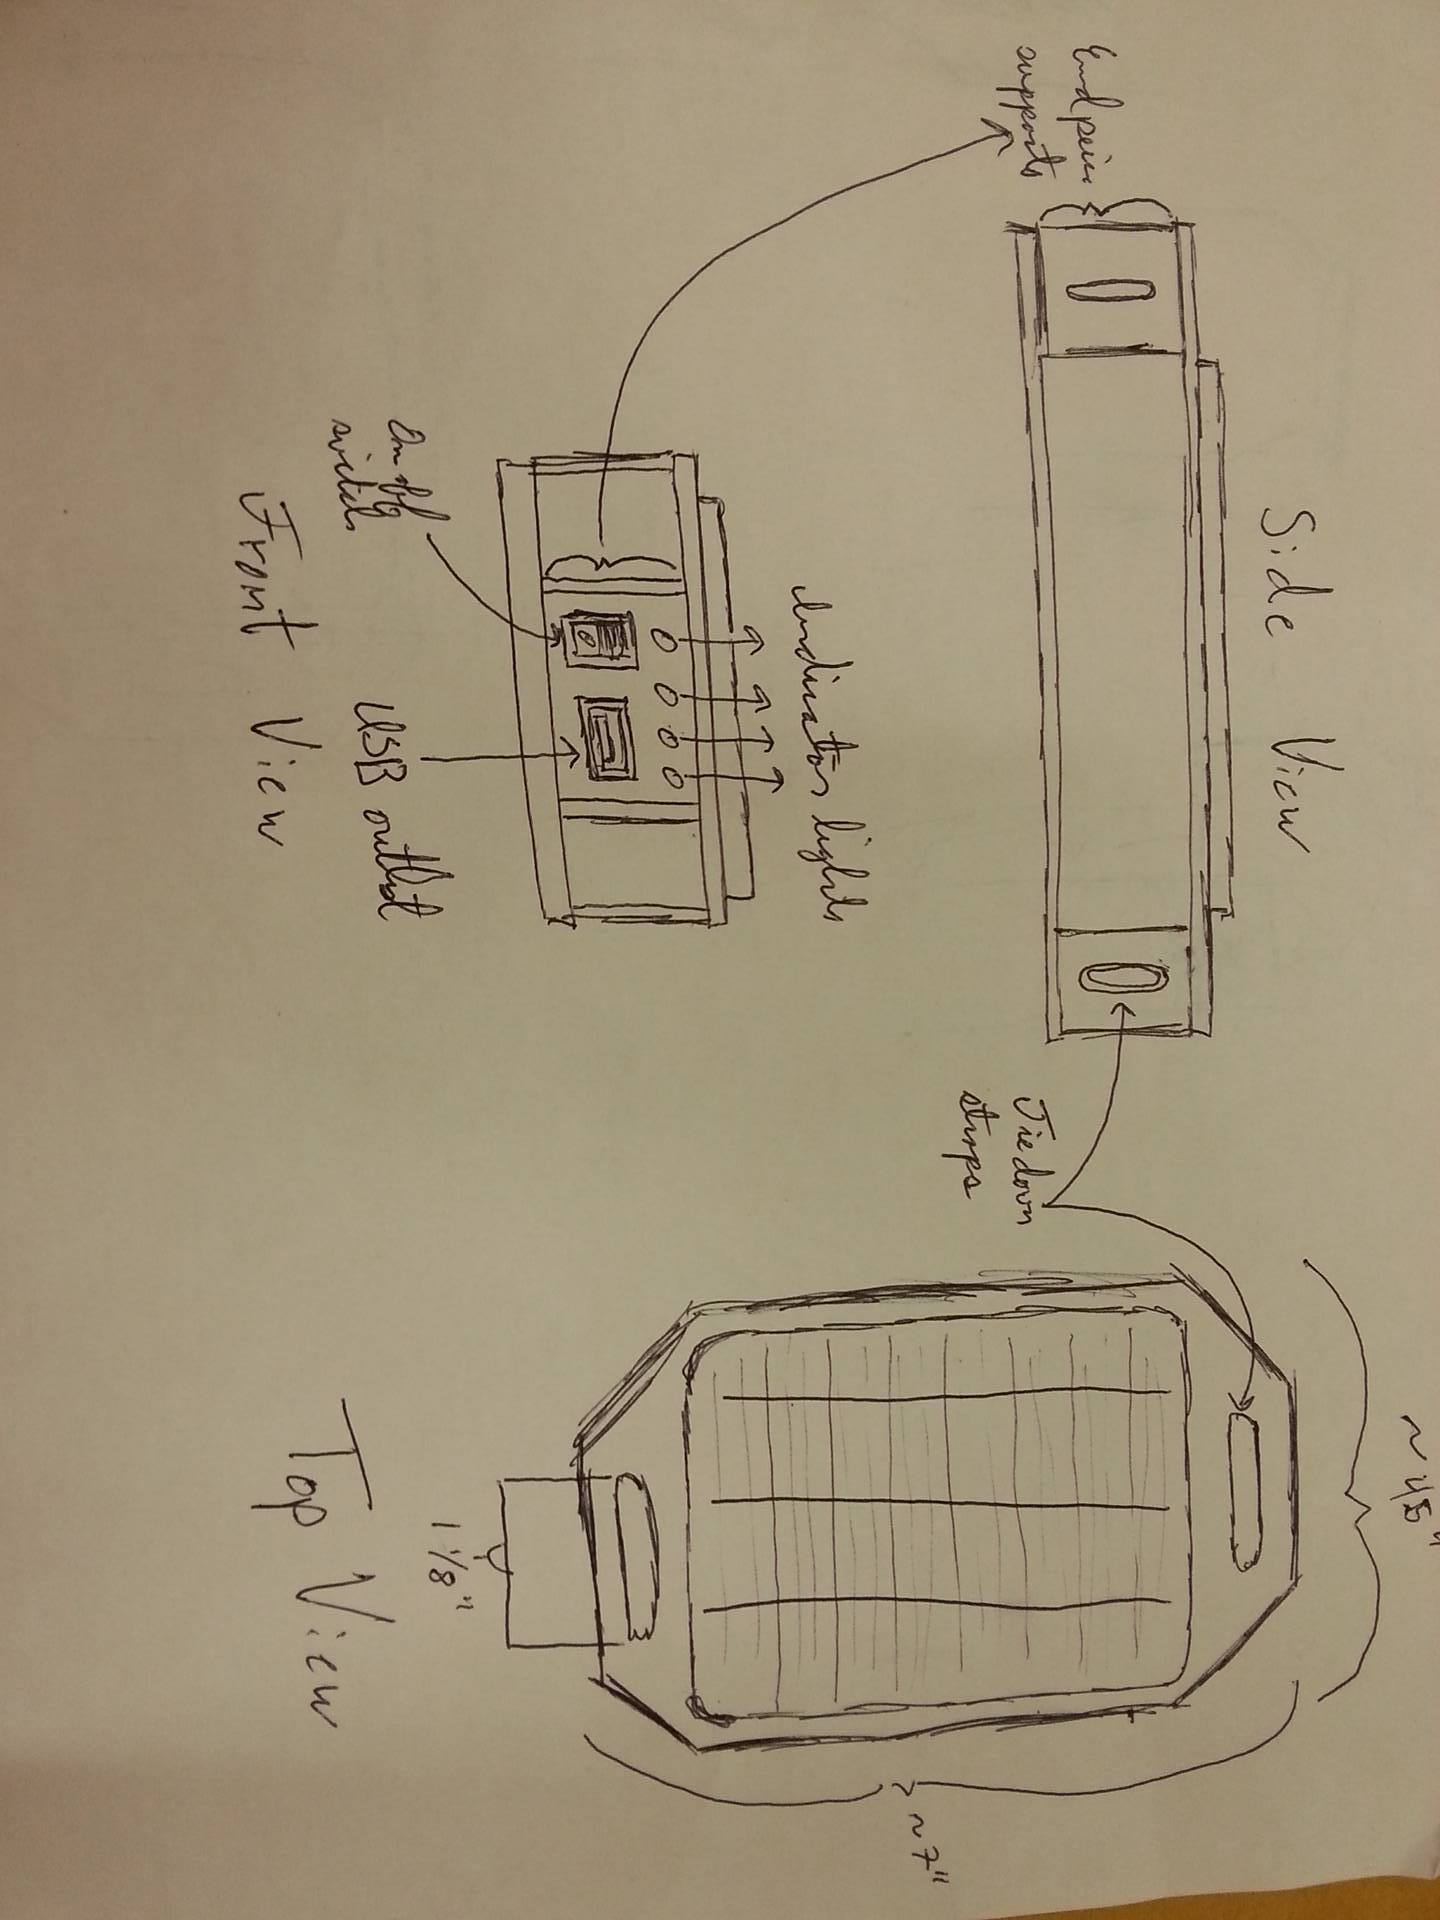 Side View
End peice
supports
Tie down
straps
~ 4.5"
Indicator lights
On off
switch
USB outlet
Front View
1 1/8"
~ 7"
Top View